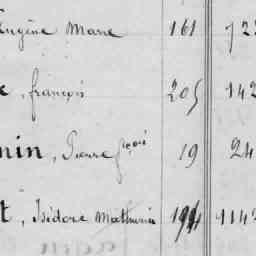 Eugène Marie 161 722
e, françois 205 142
nin, Pierre fçois 19 24
t, Isidore Mathurin 194 1142